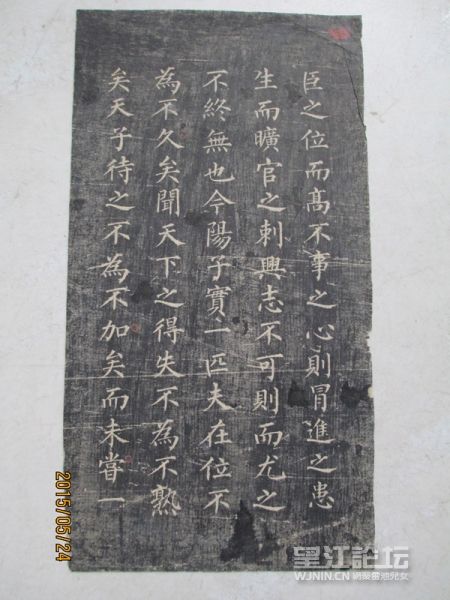 臣之位而髙不事之心則冒進之患
生而曠官之刺興志不可則而尤之
不終無也今陽子實一匹夫在位不
為不久矣聞天下之得失不為不熟
矣天子待之不為不加矣而未嘗一
2015/05/24
望江論坛
WJNIN.CN 網聚雷池兒女